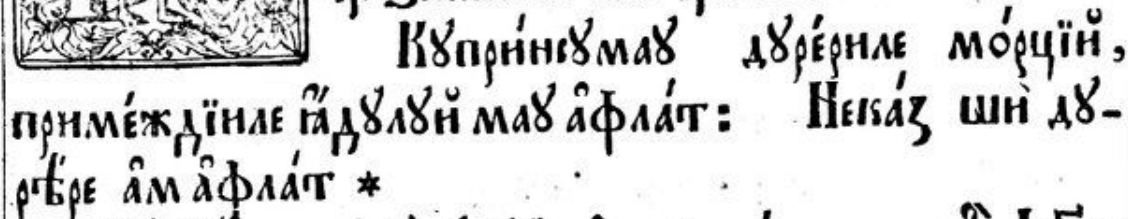 Кꙋпри́нсꙋмаꙋ дꙋре́риле мо́рцїй,
приме́ждїиле ꙗ҆́дꙋлꙋй маꙋ а҆фла́т: Неказ́ шѝ дꙋ-
рѣ́ре а҆м а҆фла́т *